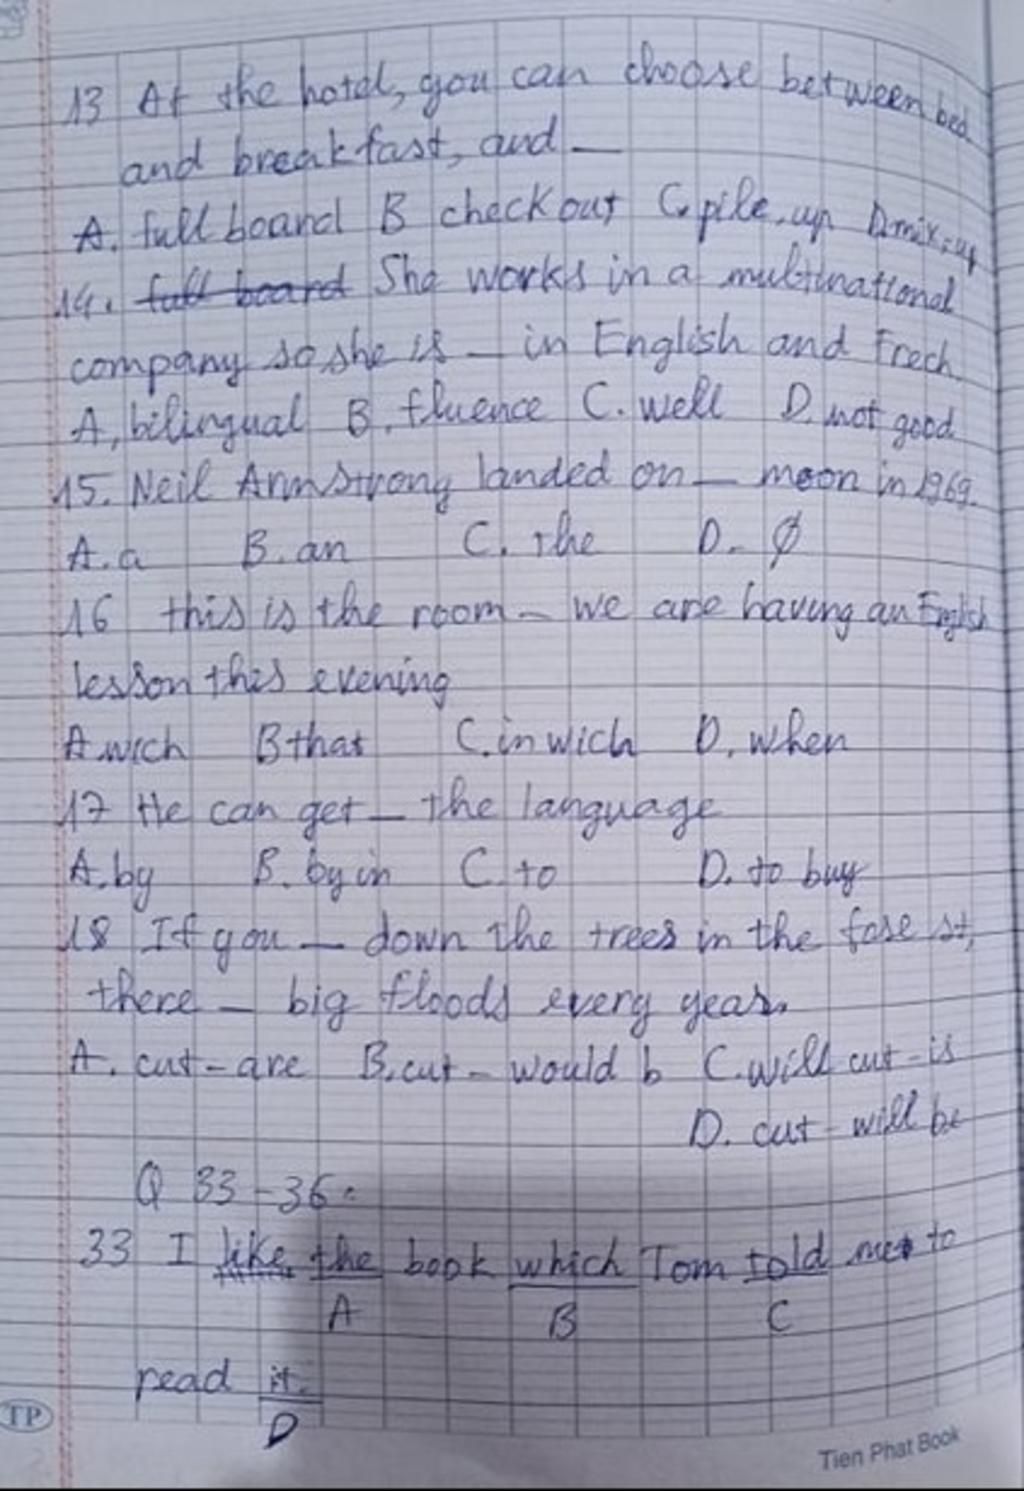 13 At the hotel, you can choose between bed
and breakfast, and _
A. full board B check out C. pile, up D. mix, up
14. full board She works in a multinational
company so she is _ in English and Frech
A, bilingual B. fluence C. well D. not good
15. Neil Armstrong landed on _ moon in 1969.
A. a B. an C. the D. Ø
16 this is the room _ we are having an English
lesson this evening
A wich B that C. in wich D. when
17 He can get _ the language
A. by B. by in C. to D. to buy
18 If you _ down the trees in the forest,
there _ big floods every year.
A. cut - are B. cut - would b C. will cut - is
D. cut - will be
Q 33 - 36:
33 I like the book which Tom told me to
A B C
read it.
D
TP
Tien Phat Book